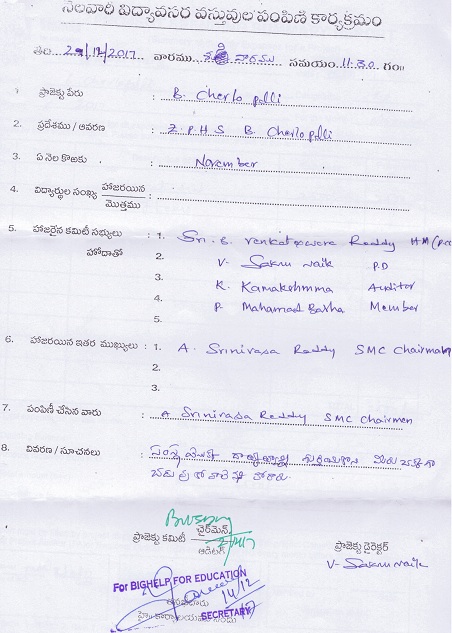 నెలవారి విద్యావసర వస్తువుల పంపిణీ కార్యక్రమం
తేది 2/12/2017 వారము శని వారము సమయం 11:30 గం॥
1. ప్రాజెక్టు పేరు : B. Cherlo palli
2. ప్రదేశము / ఆవరణ : Z.P.H.S B. Cherlopalli
3. ఏ నెల కొఱకు : November
4. విద్యార్థుల సంఖ్య హాజరయిన / మొత్తము :
5. హాజరైన కమిటీ సభ్యులు హోదాతో : 1. Sri. B. Venkateswara Reddy HM
2. V. Sakru naik P.D
3. K. Kamakshmma Auditor
4. P. Mahamad Basha Member
5.
6. హాజరయిన ఇతర ముఖ్యులు : 1. A. Srinivasa Reddy SMC Chairman
2.
3.
7. పంపిణీ చేసిన వారు : A Srinivasa Reddy SMC Chairmen
8. వివరణ / సూచనలు :
ప్రాజెక్టు కమిటీ ఛైర్‌మెన్ / ఆడిటర్
ప్రాజెక్టు డైరెక్టర్
V- Sakru naik
For BIGHELP FOR EDUCATION
14/12
SECRETARY